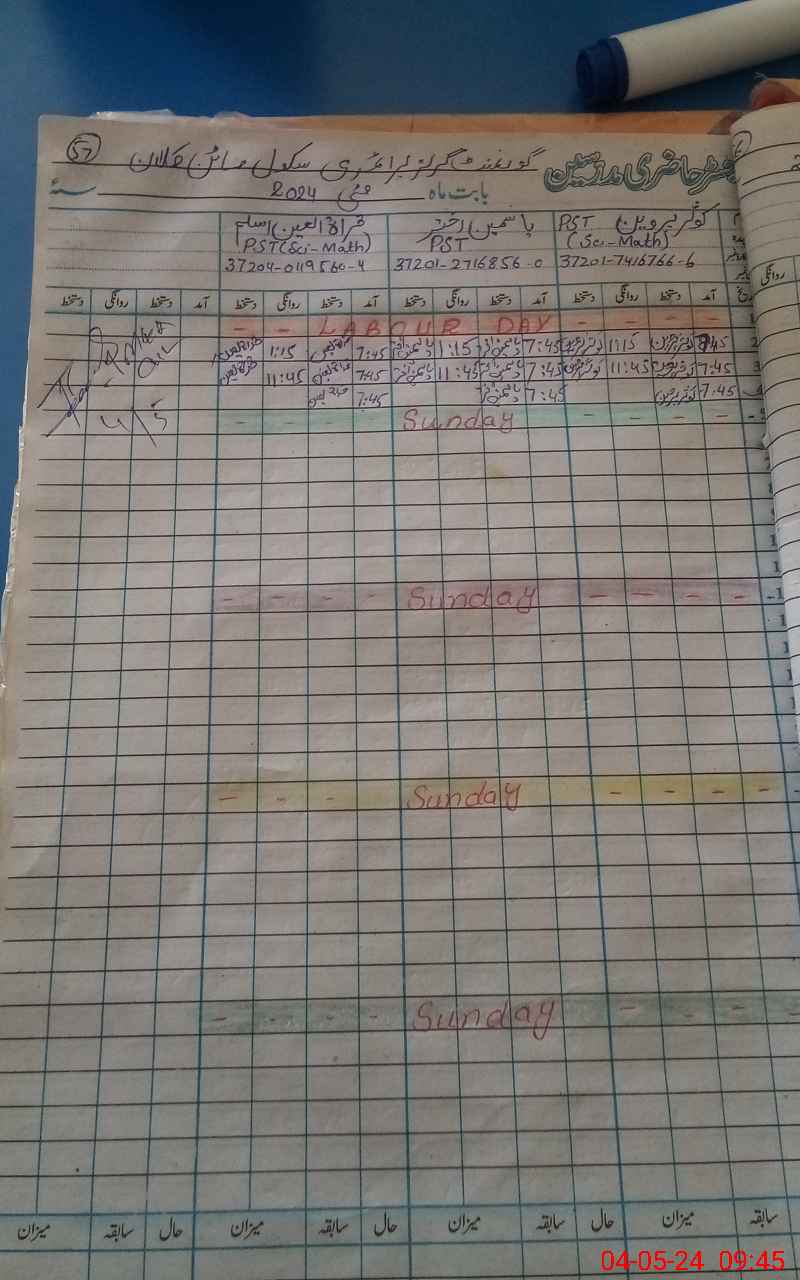 رجسٹر حاضری مدرسین گورنمنٹ گرلز پرائمری سکول کلاں 57
بابت ماہ مئی 2024 سنہ
کوثر پروین PST یاسمین اختر قراۃ العین اسلم
(Sci-Math) PST PST (Sci-Math)
37201-7416766-6 37201-2716856-0 37204-0119560-4
روانگی آمد دستخط روانگی دستخط آمد دستخط روانگی دستخط آمد دستخط روانگی دستخط آمد دستخط روانگی دستخط
- - - - LABOUR DAY - -
2 7:45 کوثر پروین 1:15 کوثر پروین 7:45 یاسمین اختر 1:15 یاسمین اختر 7:45 قراۃ العین 1:15 قراۃ العین
3 7:45 کوثر پروین 11:45 کوثر پروین 7:45 یاسمین اختر 11:45 یاسمین اختر 7:45 قراۃ العین 11:45 قراۃ العین
7:45 کوثر پروین 7:45 یاسمین اختر 7:45 قراۃ العین
4/5
- - - - Sunday - - - -
- - - - Sunday - - - -
- - - - Sunday - - -
- - - - Sunday - - - -
سابقہ میزان حال سابقہ میزان حال سابقہ میزان حال سابقہ میزان
04-05-24 09:45